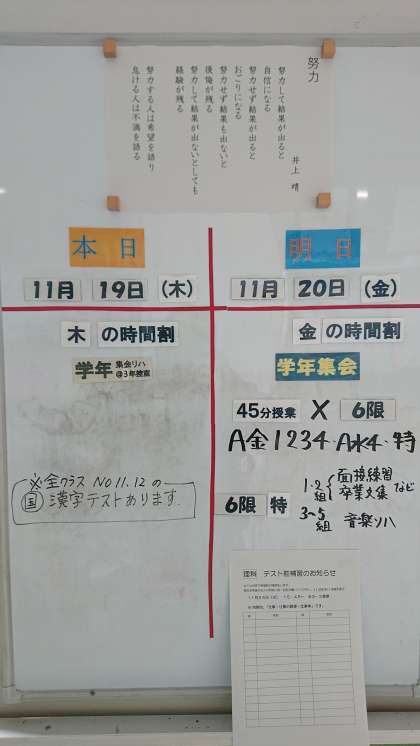 努力
井上 靖
努力して結果が出ると
自信になる
努力せず結果が出ると
おごりになる
努力せず結果も出ないと
後悔が残る
努力して結果が出ないとしても
経験が残る
努力する人は希望を語り
怠ける人は不満を語る
本日
11月 19日 (木)
木 の時間割
学年 集会リハ
@3年控室
※全クラス No11.12の
国 漢字テストあります.
明日
11月 20日 (金)
金 の時間割
学年集会
45分授業 X 6限
A金1234・A水4・特
6限 特
1・2組 面接練習
卒業文集 など
3~5組 音楽リハ
理科 テスト前補習のお知らせ